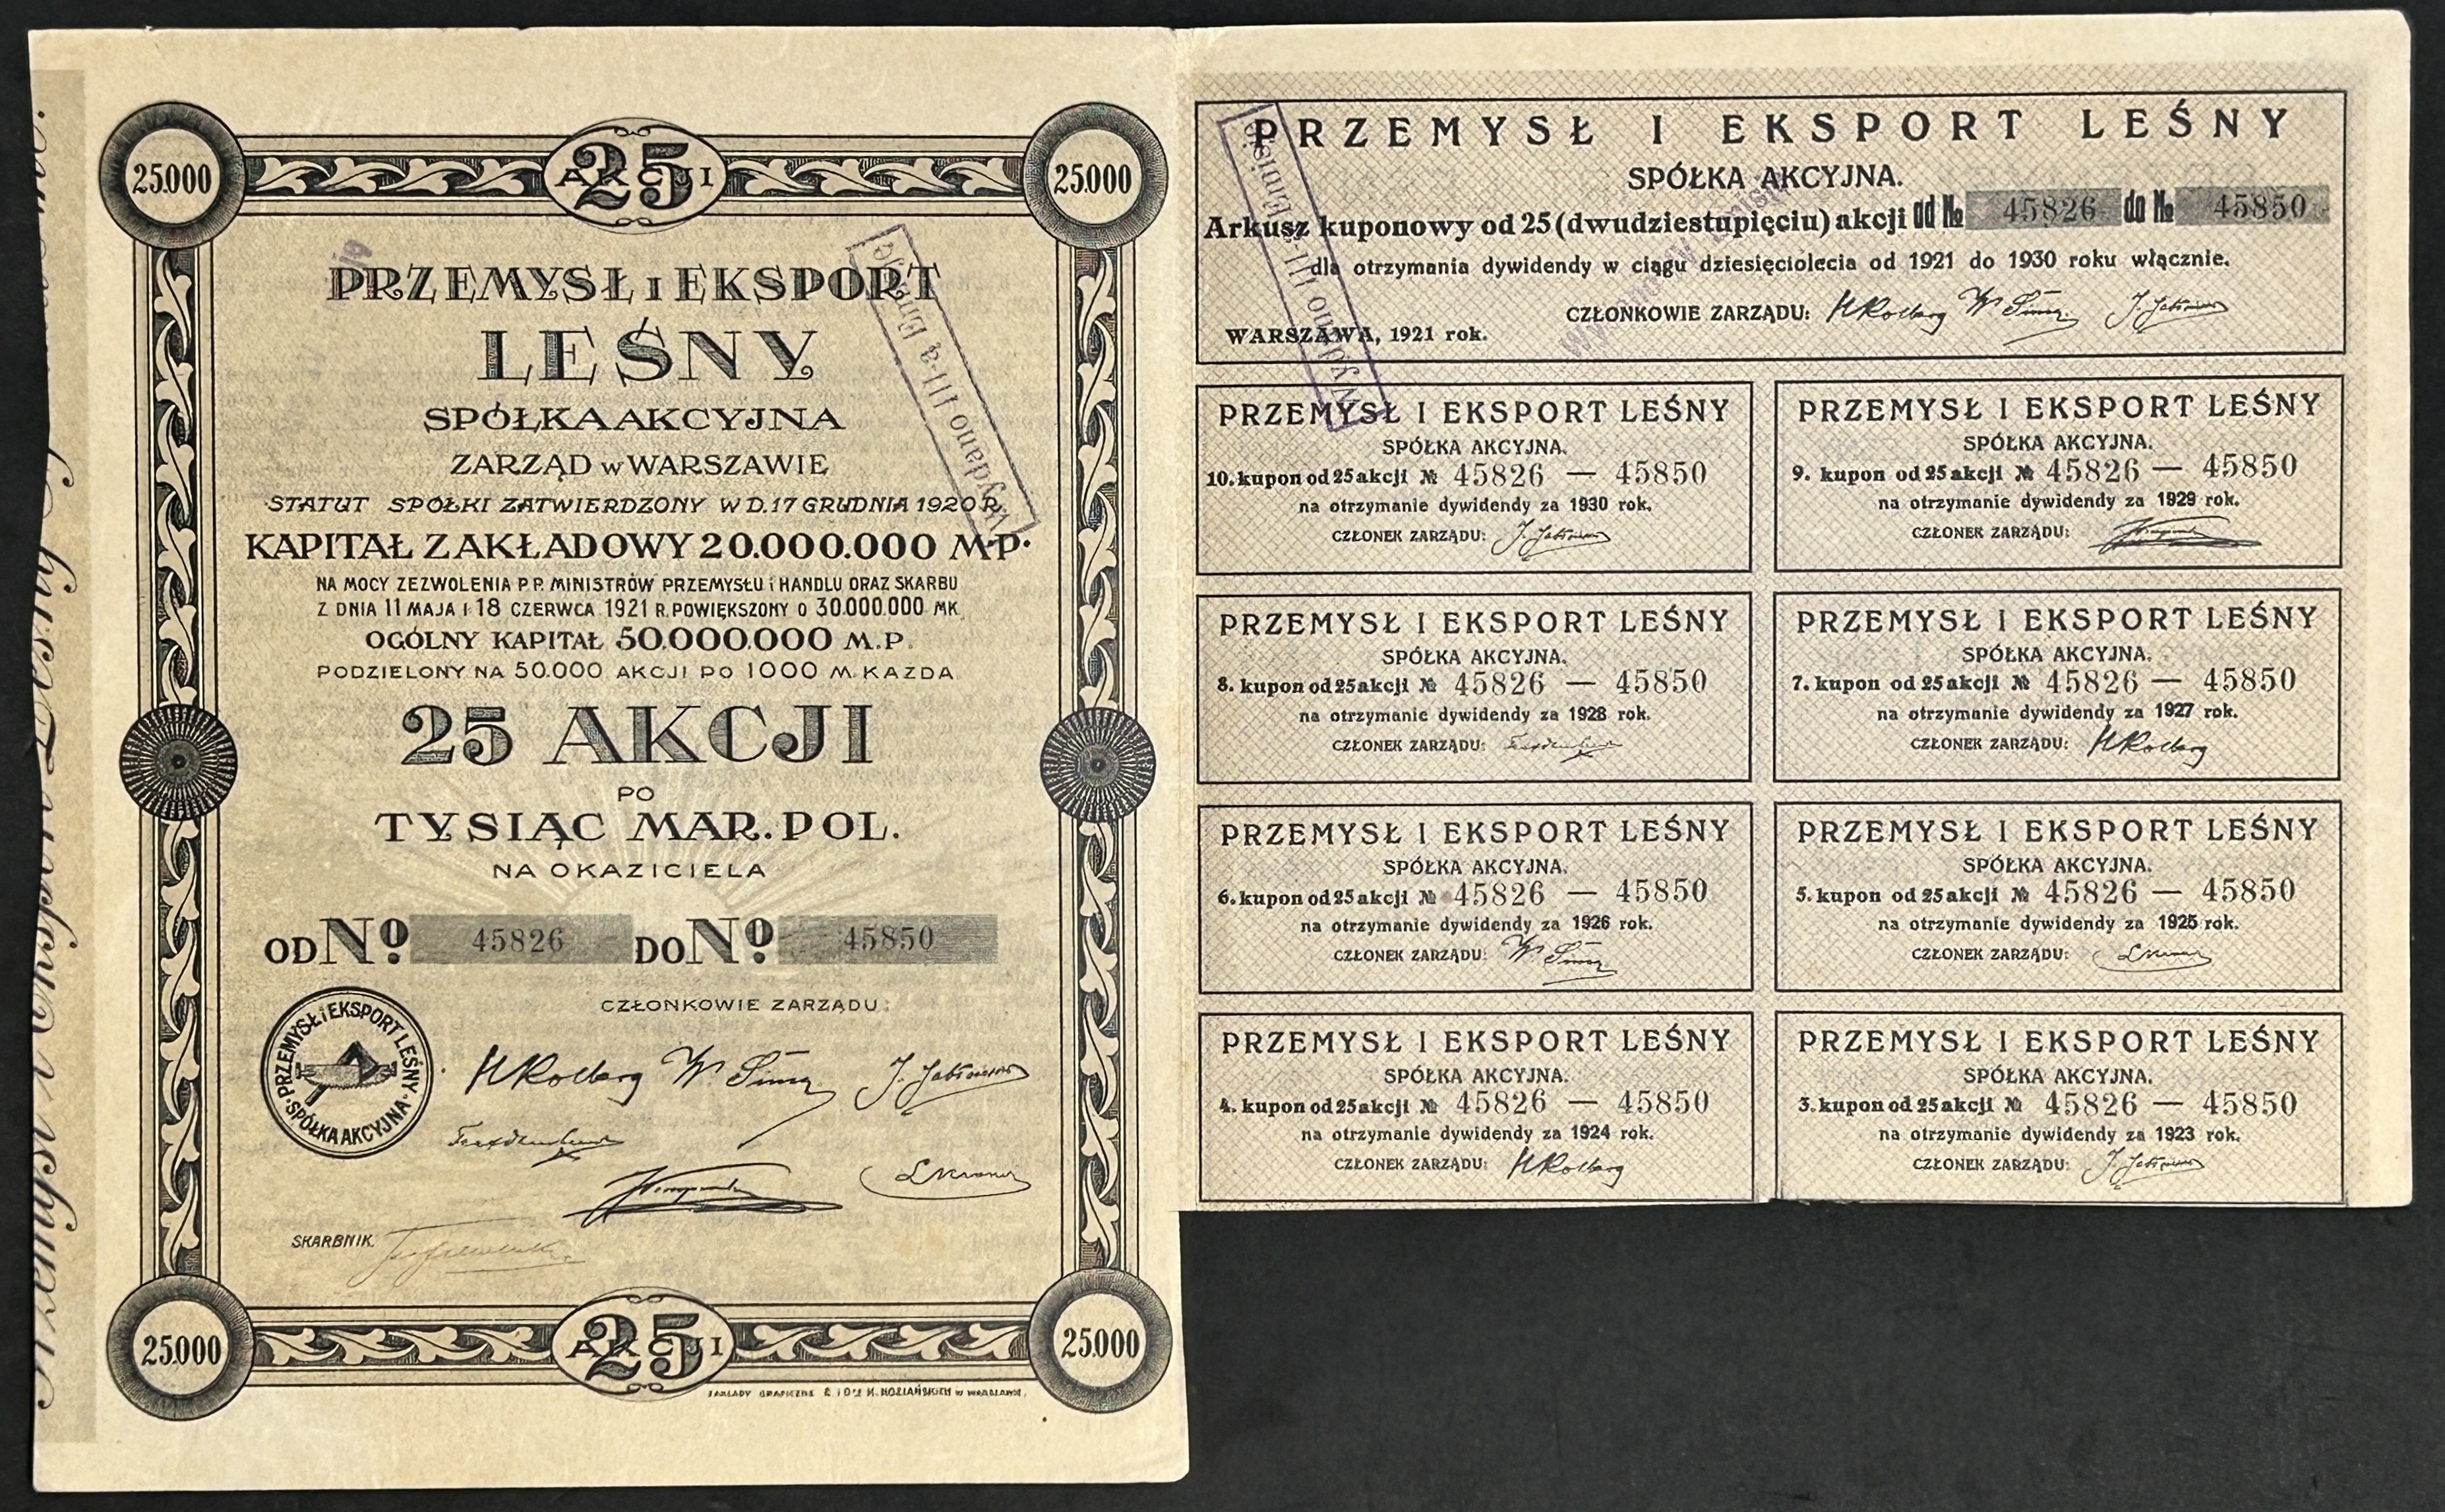 25.000
25 AKCJI
25.000
PRZEMYSŁ I EKSPORT
LEŚNY
SPÓŁKA AKCYJNA
ZARZĄD W WARSZAWIE
STATUT SPÓŁKI ZATWIERDZONY W D. 17 GRUDNIA 1920 R.
KAPITAŁ ZAKŁADOWY 20.000.000 M.P.
NA MOCY ZEZWOLENIA P.P. MINISTRÓW PRZEMYSŁU i HANDLU ORAZ SKARBU
Z DNIA 11 MAJA i 18 CZERWCA 1921 R. POWIĘKSZONY O 30.000.000 MK.
OGÓLNY KAPITAŁ 50.000.000 M.P.
PODZIELONY NA 50.000 AKCJI PO 1000 M. KAZDA
25 AKCJI
PO
TYSIĄC MAR. POL.
NA OKAZICIELA
OD No 45826 DO No 45850
CZŁONKOWIE ZARZĄDU:
PRZEMYSŁ i EKSPORT LEŚNY
SPÓŁKA AKCYJNA
SKARBNIK
25.000
25 AKCJI
25.000
Wydano III-ą Emisję
Przemysł i Eksport Leśny
PRZEMYSŁ I EKSPORT LEŚNY
SPÓŁKA AKCYJNA.
Arkusz kuponowy od 25 (dwudziestupięciu) akcji od № 45826 do № 45850
dla otrzymania dywidendy w ciągu dziesięciolecia od 1921 do 1930 roku włącznie.
CZŁONKOWIE ZARZĄDU:
WARSZAWA, 1921 rok.
Wydano III-ą Emisję
PRZEMYSŁ I EKSPORT LEŚNY
SPÓŁKA AKCYJNA.
10. kupon od 25 akcji № 45826 — 45850
na otrzymanie dywidendy za 1930 rok.
CZŁONEK ZARZĄDU:
PRZEMYSŁ I EKSPORT LEŚNY
SPÓŁKA AKCYJNA.
9. kupon od 25 akcji № 45826 — 45850
na otrzymanie dywidendy za 1929 rok.
CZŁONEK ZARZĄDU:
PRZEMYSŁ I EKSPORT LEŚNY
SPÓŁKA AKCYJNA.
8. kupon od 25 akcji № 45826 — 45850
na otrzymanie dywidendy za 1928 rok.
CZŁONEK ZARZĄDU:
PRZEMYSŁ I EKSPORT LEŚNY
SPÓŁKA AKCYJNA.
7. kupon od 25 akcji № 45826 — 45850
na otrzymanie dywidendy za 1927 rok.
CZŁONEK ZARZĄDU:
PRZEMYSŁ I EKSPORT LEŚNY
SPÓŁKA AKCYJNA.
6. kupon od 25 akcji № 45826 — 45850
na otrzymanie dywidendy za 1926 rok.
CZŁONEK ZARZĄDU:
PRZEMYSŁ I EKSPORT LEŚNY
SPÓŁKA AKCYJNA.
5. kupon od 25 akcji № 45826 — 45850
na otrzymanie dywidendy za 1925 rok.
CZŁONEK ZARZĄDU:
PRZEMYSŁ I EKSPORT LEŚNY
SPÓŁKA AKCYJNA.
4. kupon od 25 akcji № 45826 — 45850
na otrzymanie dywidendy za 1924 rok.
CZŁONEK ZARZĄDU:
PRZEMYSŁ I EKSPORT LEŚNY
SPÓŁKA AKCYJNA.
3. kupon od 25 akcji № 45826 — 45850
na otrzymanie dywidendy za 1923 rok.
CZŁONEK ZARZĄDU: